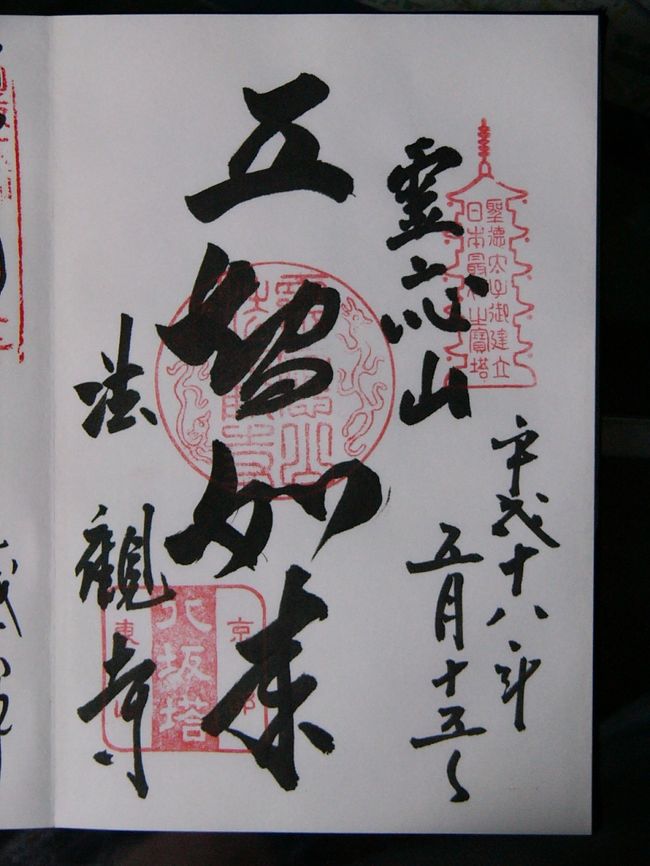 聖德太子御建立
日本最初之寶塔
平成十八年
五月十五日
霊応山
五智如来
法觀寺
京都
八坂塔
東山